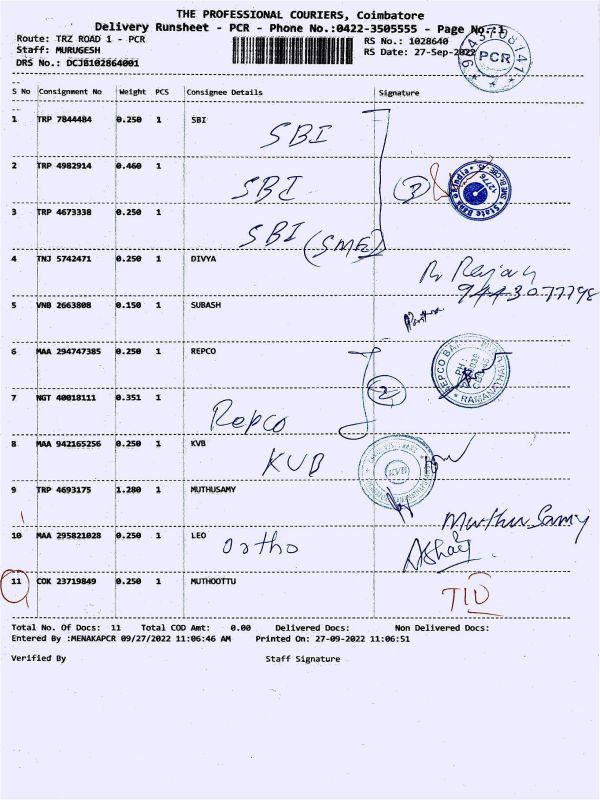 THE PROFESSIONAL COURIERS, Coimbatore
Delivery Runsheet - PCR - Phone No.:0422-3505555 - Page No.:1
Route: TRZ ROAD 1 - PCR RS No.: 1028640
Staff: MURUGESH RS Date: 27-Sep-2022
DRS No.: DCJB102864001
PCR
S No Consignment No Weight PCS Consignee Details Signature
1 TRP 7844484 0.250 1 SBI
SBI
2 TRP 4982914 0.460 1
SBI 3
State Bank of India
12776
3 TRP 4673338 0.250 1
SBI (SME)
4 TNJ 5742471 0.250 1 DIVYA
9443077798
5 VNB 2663808 0.150 1 SUBASH
6 MAA 294747385 0.250 1 REPCO
REPCO BANK
7 NGT 40018111 0.351 1
Repco 2
8 MAA 942165256 0.250 1 KVB
KVB
KVB
9 TRP 4693175 1.280 1 MUTHUSAMY
Muthu Samy
10 MAA 295821028 0.250 1 LEO
Ortho Akhay
11 COK 23719849 0.250 1 MUTHOOTTU
TID
Total No. Of Docs: 11 Total COD Amt: 0.00 Delivered Docs: Non Delivered Docs:
Entered By :MENAKAPCR 09/27/2022 11:06:46 AM Printed On: 27-09-2022 11:06:51
Verified By Staff Signature